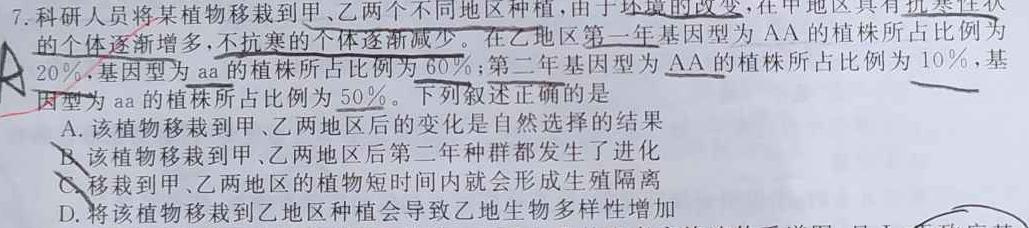 7.科研人员将某植物移栽到甲、乙两个不同地区种植,由于环境的改变,在甲地区具有抗寒性状
的个体逐渐增多,不抗寒的个体逐渐减少。在乙地区第一年基因型为 AA 的植株所占比例为
20%,基因型为 aa 的植株所占比例为 60%;第二年基因型为 AA 的植株所占比例为 10%,基
因型为 aa 的植株所占比例为 50%。下列叙述正确的是
A.该植物移栽到甲、乙两地区后的变化是自然选择的结果
B.该植物移栽到甲、乙两地区后第二年种群都发生了进化
C.移栽到甲、乙两地区的植物短时间内就会形成生殖隔离
D.将该植物移栽到乙地区种植会导致乙地生物多样性增加